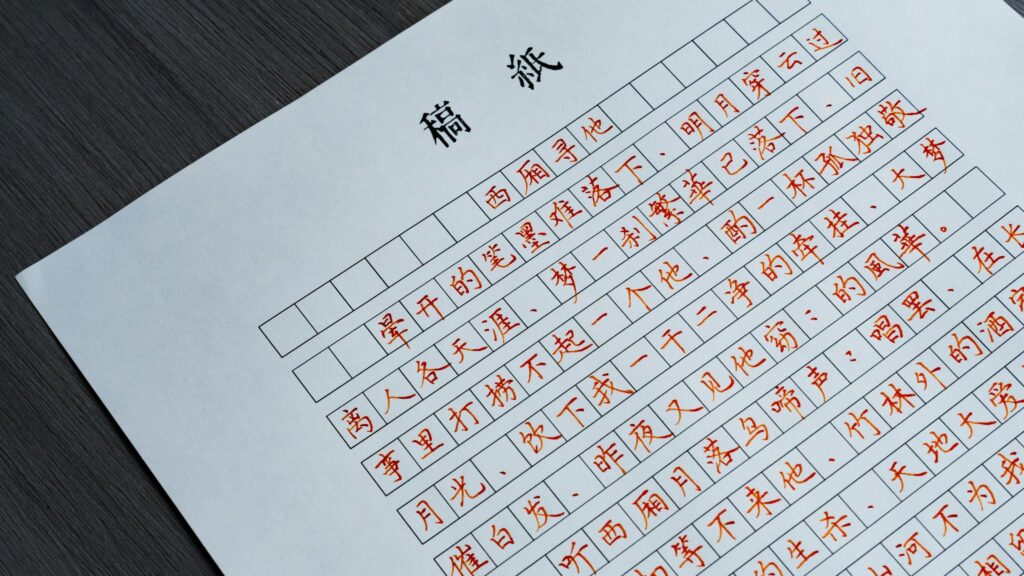 稿紙
西厢寻他
晕开的笔墨难落下、明月穿云过
离人各天涯、梦一刹繁華已落下、旧
事里打捞不起一个他、酌一杯孤独敬
月光、饮下我一干二净的牵挂、大梦
催白发、昨夜又见他窃:的風華。
听西厢月落乌啼声:唱罢、在长
等不来他、竹林外的酒
的生杀、天地大爱
河不为我
相